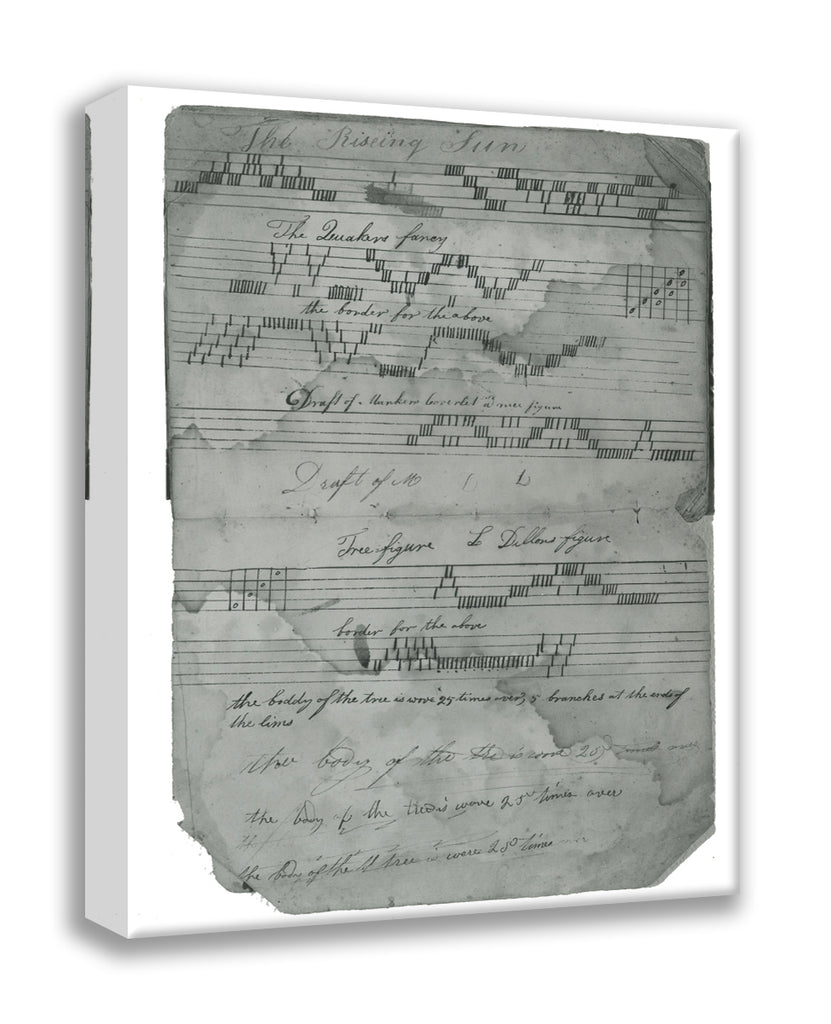 The Riseing Sun
The Quakers fancy
the border for the above
Draft of Coverlet a nice figure
Draft of M L L
Tree figure L Dillons figure
border for the above
the boddy of the tree is wove 25 times over, 5 branches at the ends of
the lims
the body of the tre is wove 25
the body of the tre is wove 25 times over
the body of the tree is wove 25 times